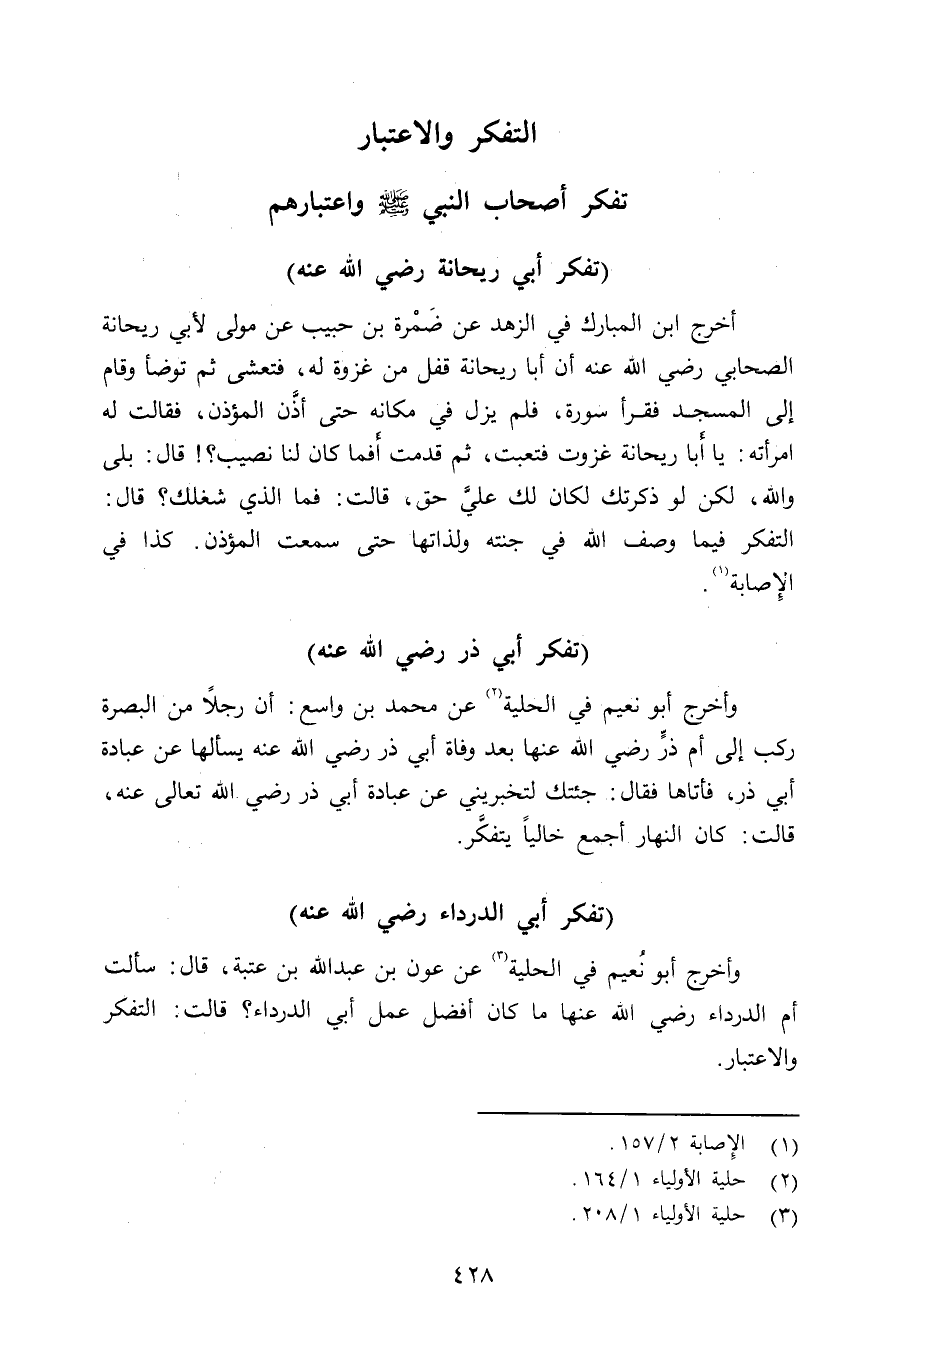 التفكر والاعتبار
تفكر أصحاب النبي ﷺ واعتبارهم
(تفكر أبي ريحانة رضي الله عنه)
أخرج ابن المبارك في الزهد عن ضَمْرة بن حبيب عن مولى لأبي ريحانة
الصحابي رضي الله عنه أن أبا ريحانة قفل من غزوة له، فتعشى ثم توضأ وقام
إلى المسجد فقرأ سورة، فلم يزل في مكانه حتى أذَّن المؤذن، فقالت له
امرأته: يا أبا ريحانة غزوت فتعبت، ثم قدمت أفما كان لنا نصيب؟! قال: بلى
والله، لكن لو ذكرتك لكان لك عليَّ حق، قالت: فما الذي شغلك؟ قال:
التفكر فيما وصف الله في جنته ولذاتها حتى سمعت المؤذن. كذا في
الإصابة(١).
(تفكر أبي ذر رضي الله عنه)
وأخرج أبو نعيم في الحلية(٢) عن محمد بن واسع: أن رجلاً من البصرة
ركب إلى أم ذرٍّ رضي الله عنها بعد وفاة أبي ذر رضي الله عنه يسألها عن عبادة
أبي ذر، فأتاها فقال: جئتك لتخبريني عن عبادة أبي ذر رضي الله تعالى عنه،
قالت: كان النهار أجمع خالياً يتفكَّر.
(تفكر أبي الدرداء رضي الله عنه)
وأخرج أبو نُعيم في الحلية(٣) عن عون بن عبدالله بن عتبة، قال: سألت
أم الدرداء رضي الله عنها ما كان أفضل عمل أبي الدرداء؟ قالت: التفكر
والاعتبار.
(١) الإصابة ١٥٧/٢.
(٢) حلية الأولياء ١٦٤/١.
(٣) حلية الأولياء ٢٠٨/١.
٤٢٨